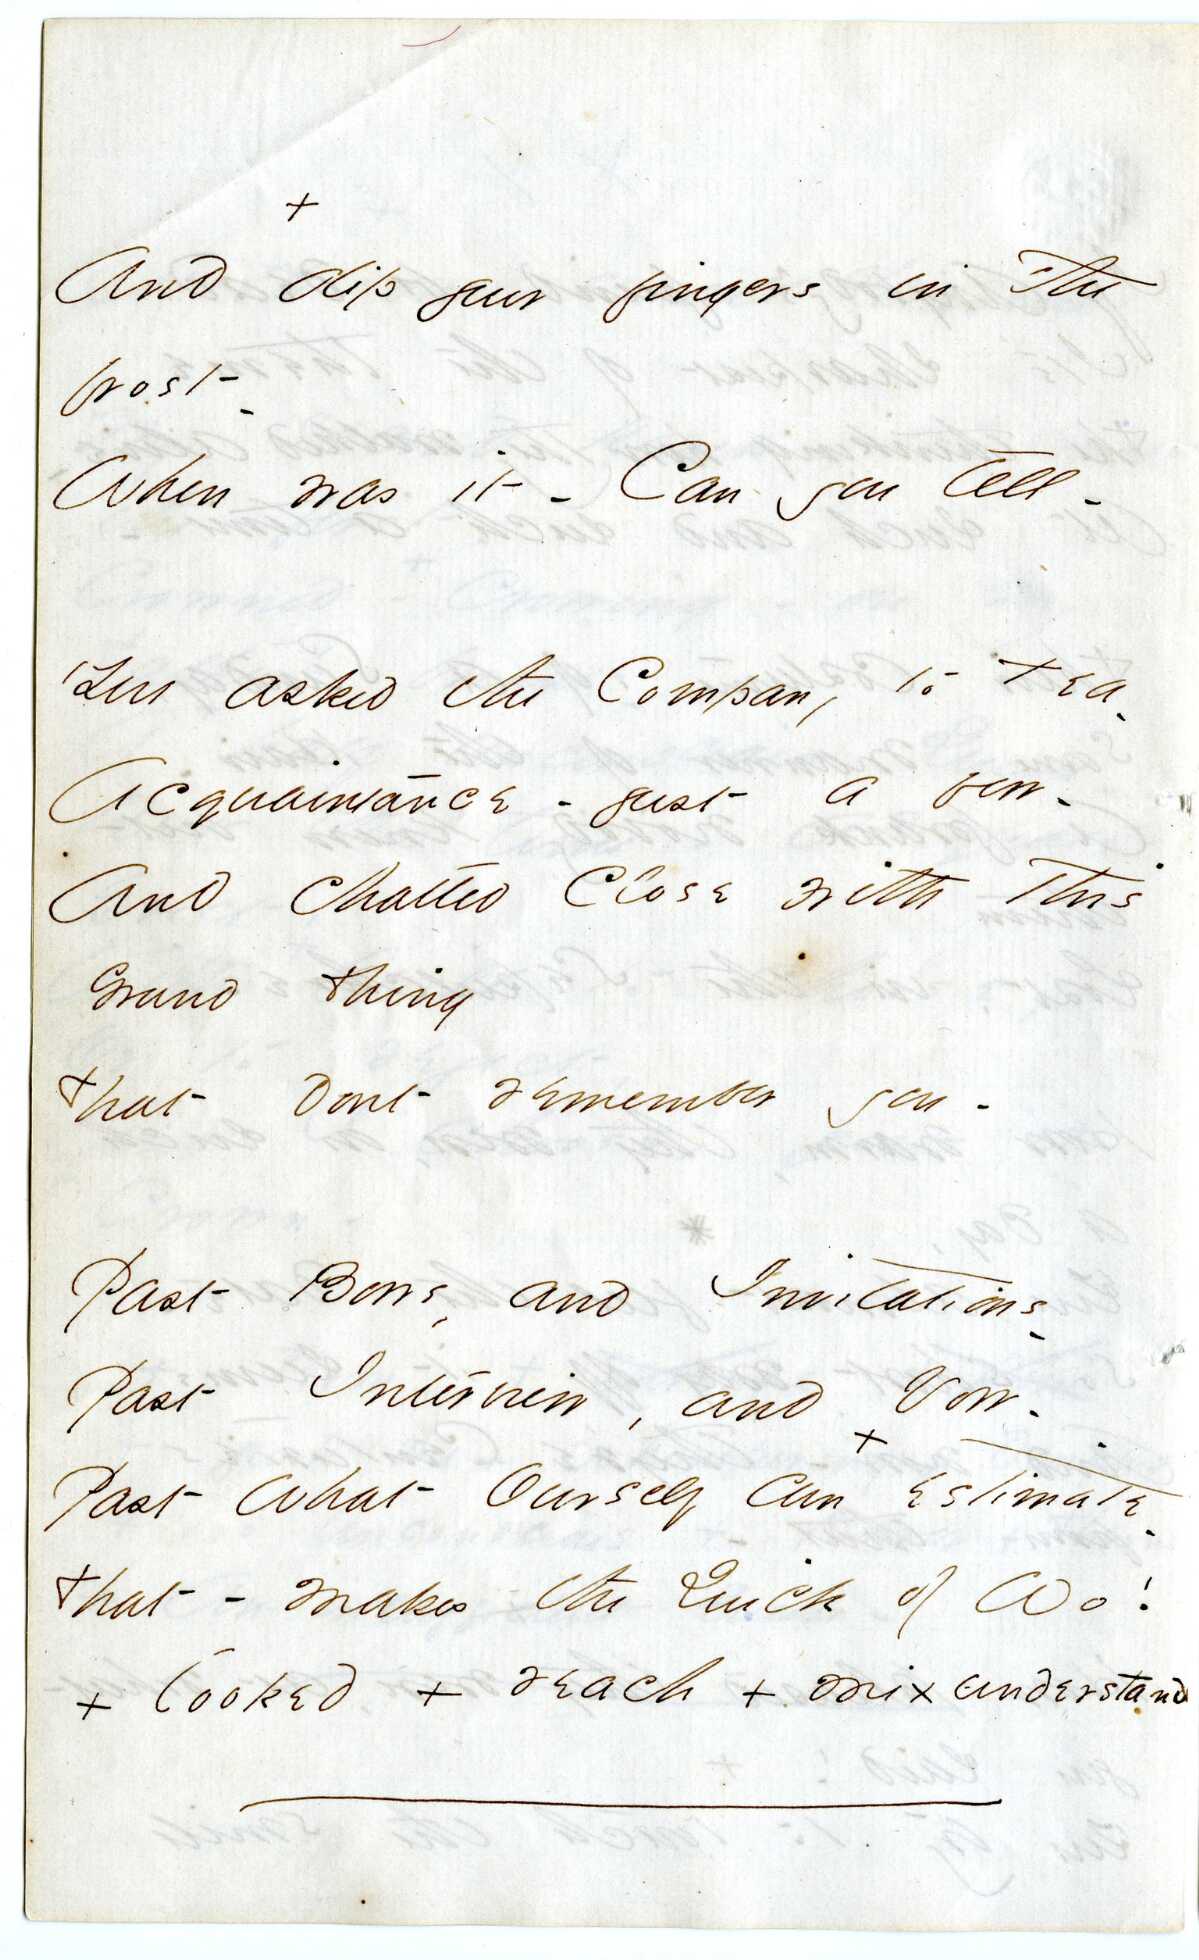 +
And dip your fingers in the
frost -
When was it - Can you tell -
You asked the Company to tea -
Acquaintance - just a few -
And chatted close with this
Grand thing
That dont remember you -
Past Bows, and Invitations -
Past Interview, and Vow -
+
Past what Ourself can estimate -
That - makes the Quick of Wo!
+ looked + reach + mix + understand